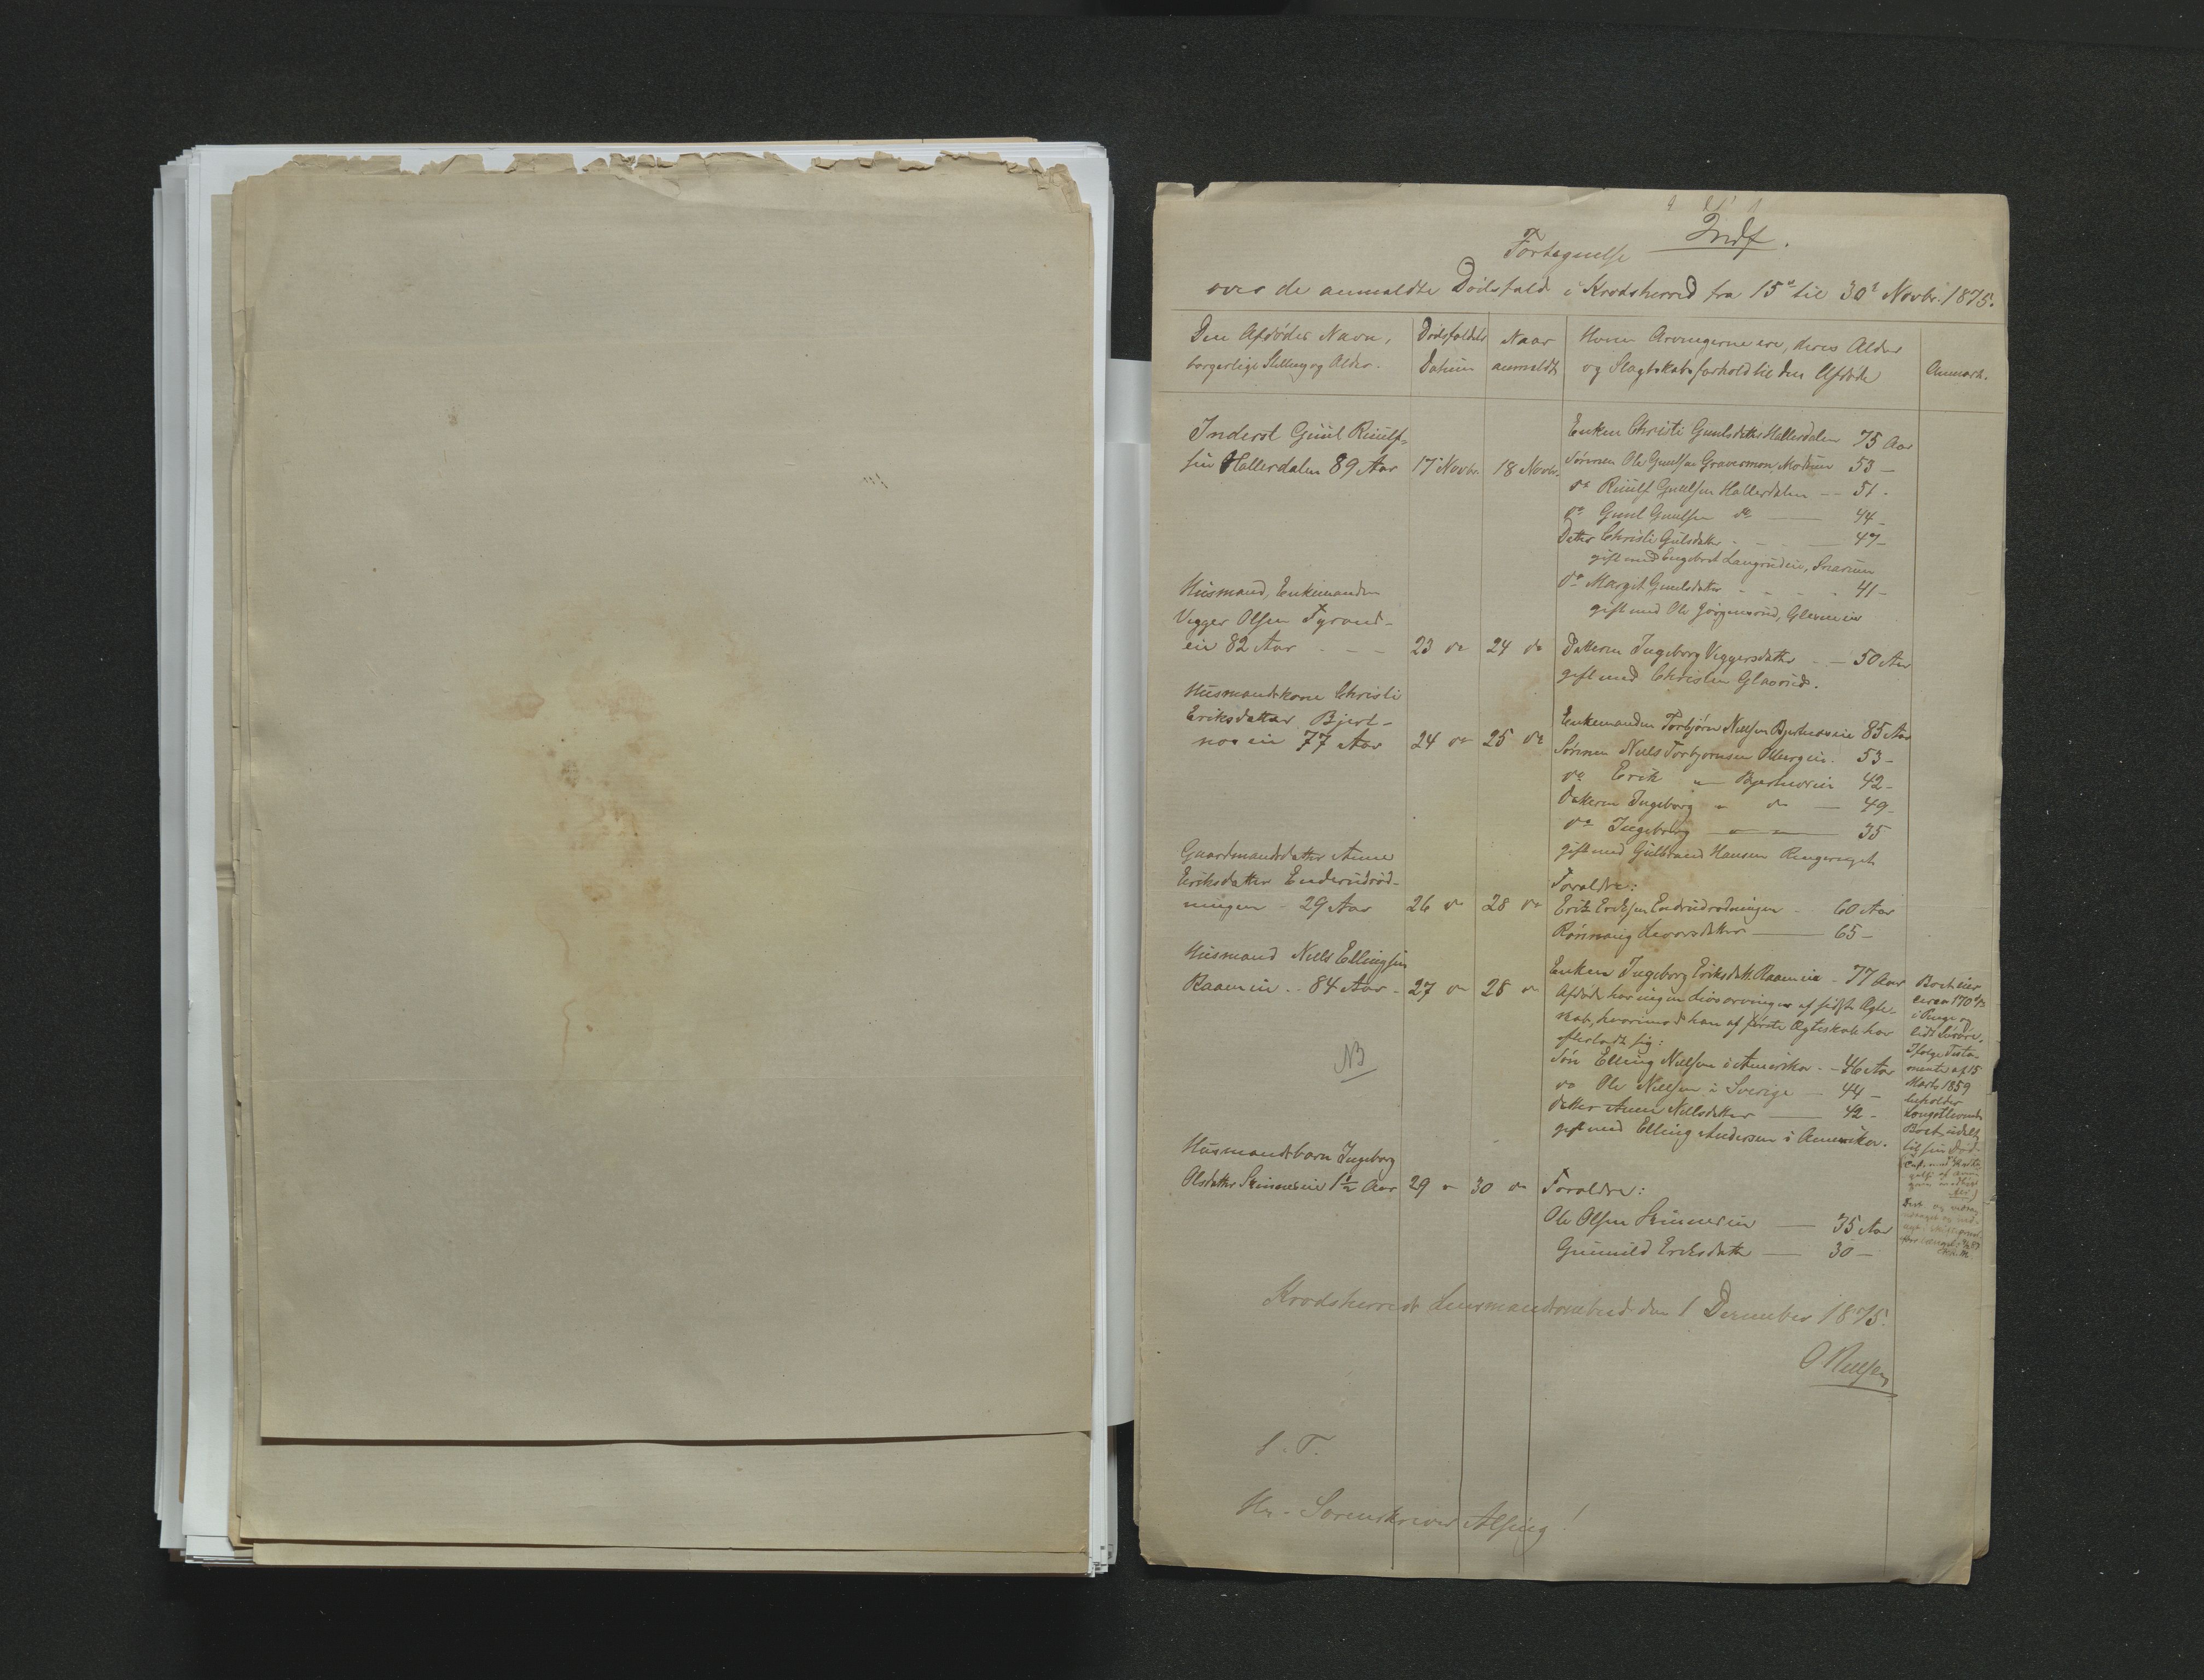 Indf.
Fortegnelse
over de anmeldte Dödsfald i Krodsherred fra 15de til 30te Novbr. 1875.
Den Afdödes Navn, borgerlige Stilling og Alder.
Dödsfaldets Datum
Naar anmeldt
Hvem Arvingerne ere, deres Alder og Slægtskabsforhold til den Afdöde
Anmærk.
Inderst Guul Ruulf-
sen Hallerdalen 89 Aar 17 Novbr. 18 Novbr.
Enken Christi Guulsdatter Hallerdalen 75 Aar
Sönnen Ole Guulsen Gravermoen Modum 53 —
do Ruulf Guulsen Hallerdalen — 51 -
do Guul Guulsen do — 44 -
Datter Christi Gulsdatter - - - 47 -
gift med Engebret Langrudeie, Snarum
do Margit Guulsdatter - - - 41 -
gift med Ole Jörgensrud,
Husmand, Enkemanden
Vegger Olsen Fyrand-
eie 82 Aar - — — 23 do 24 do
Datteren Ingeborg Veggersdatter - — 50 Aar
gift med Christen Glesrud.
Husmandskone Christi
Eriksdatter Bjert-
nes eie 77 Aar 24 do 25 do
Enkemanden Torbjörn Nielsen Bjertneseie 85 Aar
Sönnen Niels Torbjörnsen 53 -
do Erik " Bjertneseie 42 -
Datteren Ingeborg " do — 49 -
do Ingeborg — " — 35
gift med Gulbrand Hansen Ringeriget
Gaardmandsdatter Anne
Eriksdatter Enderudröd-
ningen - 29 Aar 26 do 28 do
Forældre:
Erik Eriksen Endrudrödningen - 60 Aar
Rönnaug Leversdatter — 65 —
Husmand Niels Ellingsen
Raaen eie - 84 Aar - 27 do 28 do
NB
Enken Ingeborg Eriksdatt. Raaen eie - 77 Aar
Afdöde har ingen Livsarvinger af sidste Ægte-
skab, hvorimod han af förste Ægteskab har
efterladt sig:
Sön Elling Nielsen i Amerika - - 46 Aar
do Ole Nielsen i Sverige — 44 —
datter Anne Nielsdatter — 42 -
gift med Elling Andersen i Amerika.
Boet eier
circa 170
i Penge og
lidt Lösöre.
Ifölge Testa-
mente af 15
Marts 1859
beholder
Længstlevende
Boet udelt
til sin Död
Husmandsbarn Ingeborg
Olsdatter Skinneseie 1½ Aar 29 " 30 do
Forældre:
Ole Olsen Skinneseie — 35 Aar
Gunnild Eriksdatter — 30 —
Krodsherred Lensmandsombud den 1 December 1875.
O Nielsen
S. T.
Hr. Sorenskriver Alsing!